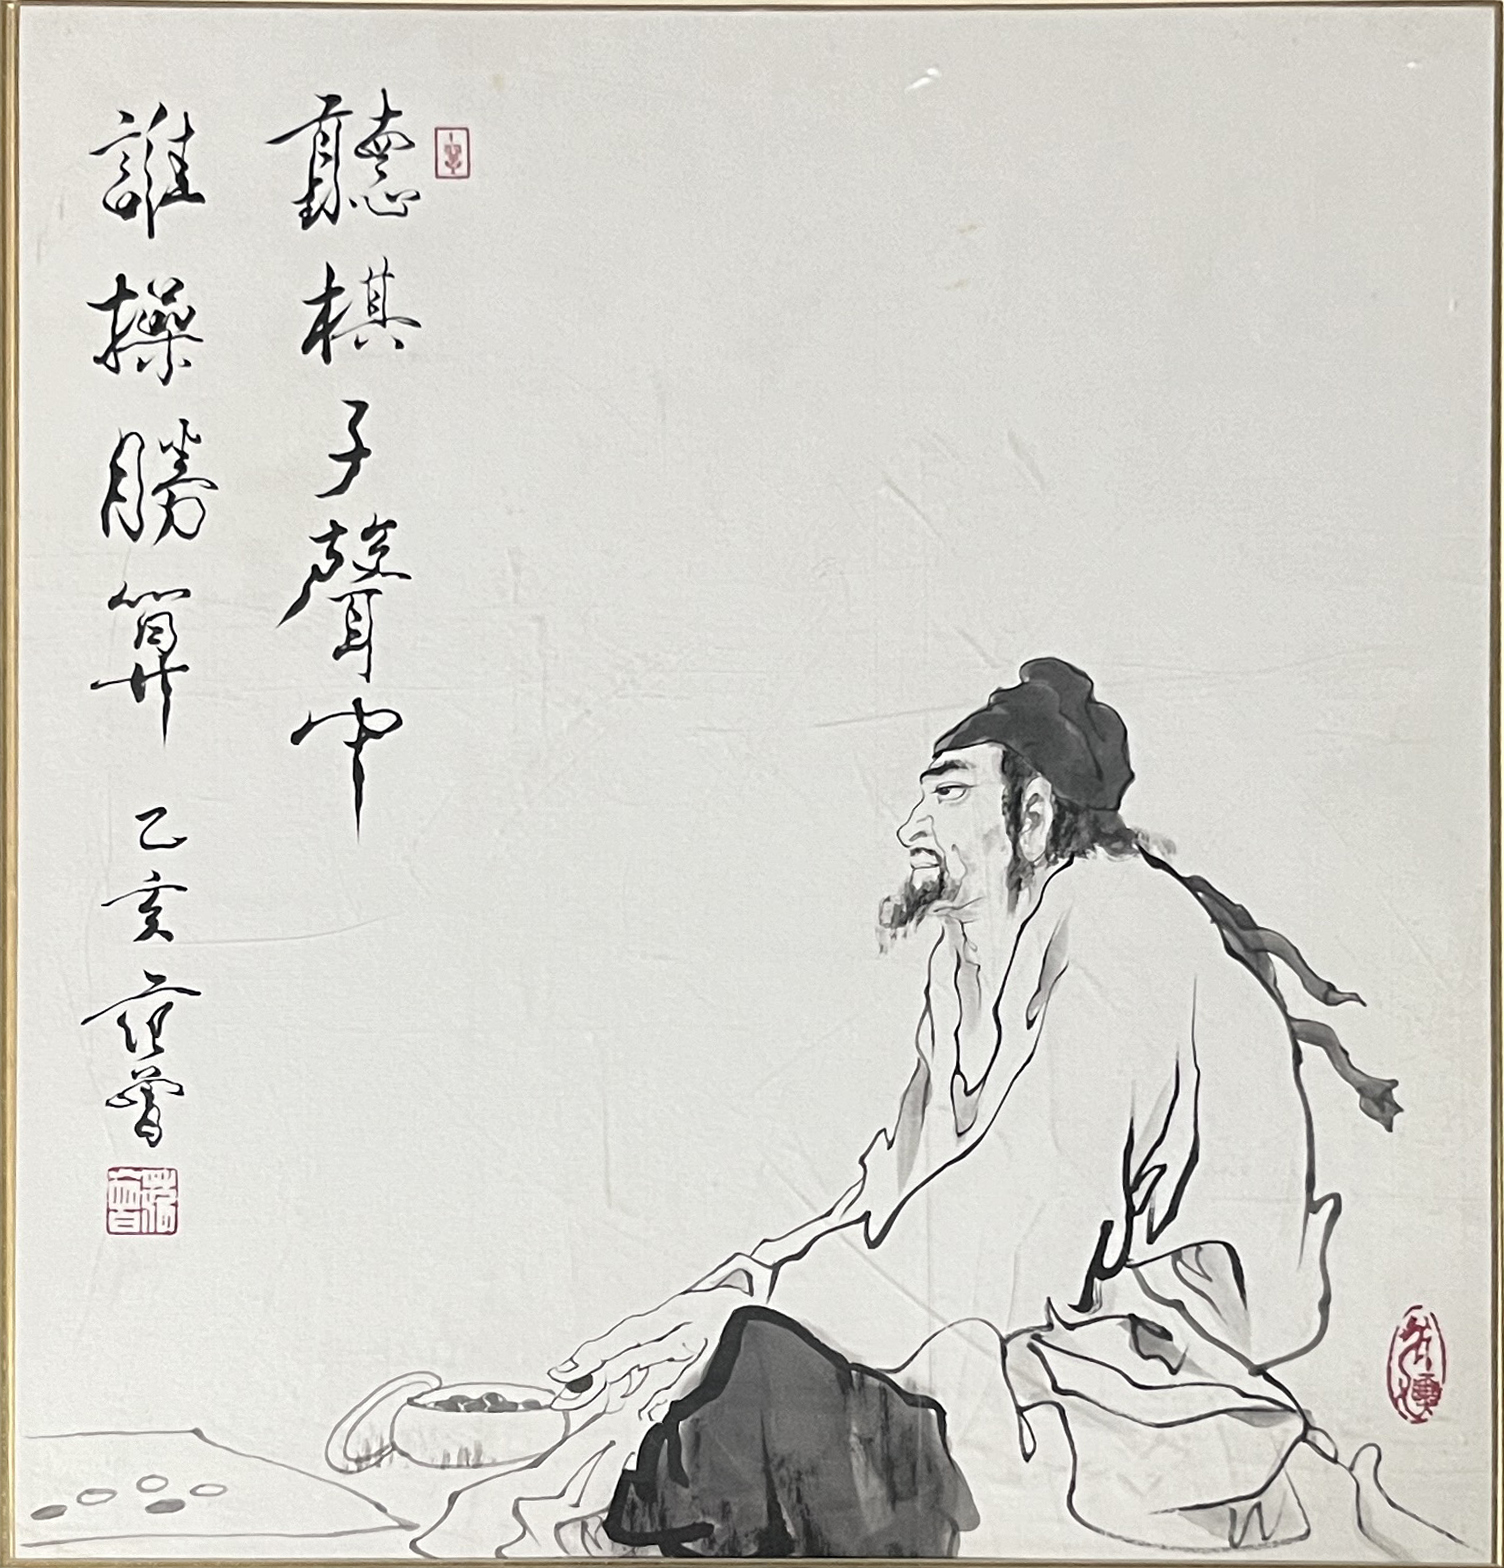 聽棋子聲中
誰操勝算 乙亥 范曾
范曾